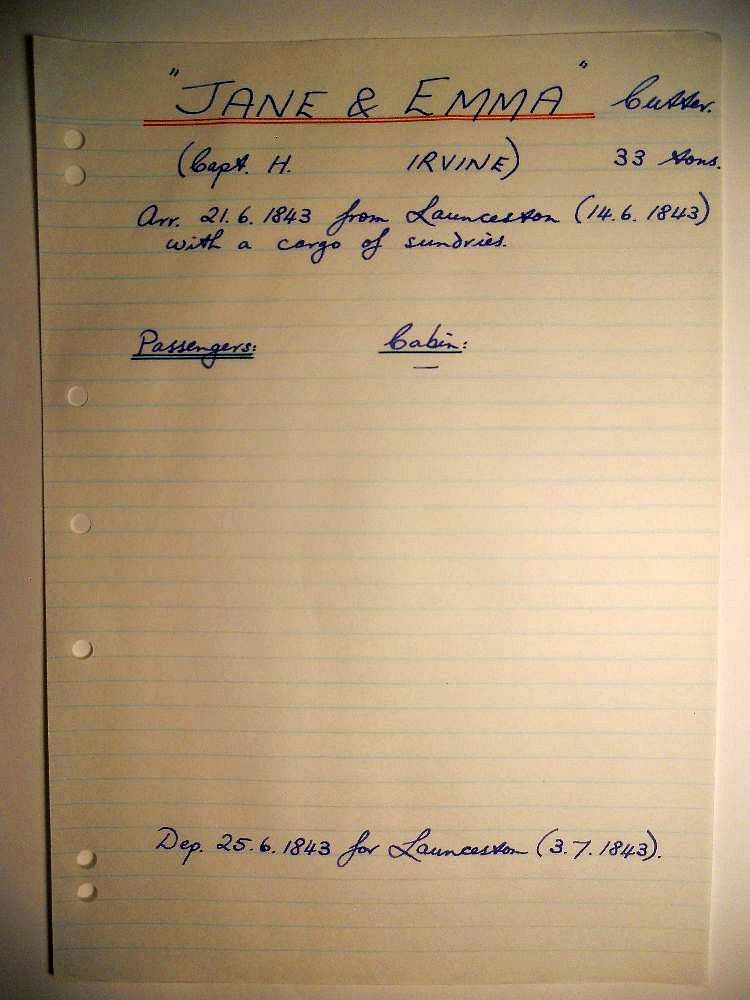 "JANE & EMMA" Cutter.
(Capt. H. IRVINE) 33 tons.
Arr. 21.6.1843 from Launceston (14.6.1843)
with a cargo of sundries.
Passengers: Cabin:
—
Dep. 25.6.1843 for Launceston (3.7.1843).